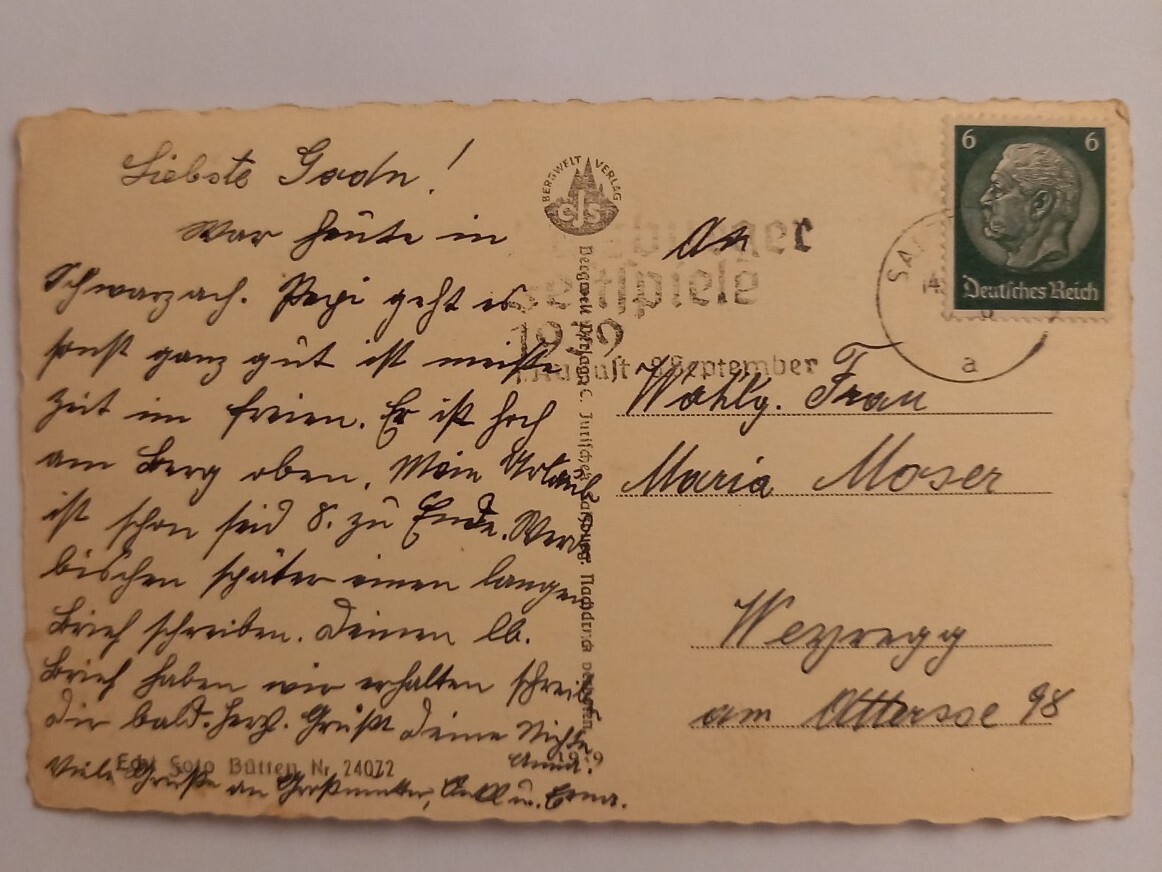 Liebste Godn!
War heute in
Schwarzach. Pepi geht es
sonst ganz gut ist meiste
Zeit im freien. Er ist hoch
am Berg oben. Mein Urlaub
ist schon seid 8. zu Ende. Werde
bischen später einen langen
Brief schreiben. Deinen lb.
Brief haben wir erhalten schreib
dir bald. Herz. Grüßt deine Nichte
Anna.
Viele Grüße an Großmutter, u. Erna.
Echt Foto Bütten Nr. 24072
BERGWELT VERLAG
CJS
Bergwelt Verlag C. Jurischek Salzburg. Nachdruck verboten.
1939
Salzburger
Festspiele
1939
1. August - 8. September
An
Wohlg. Frau
Maria Moser
Weyregg
am Attersee 98
6 6
Deutsches Reich
SALZ
14
a